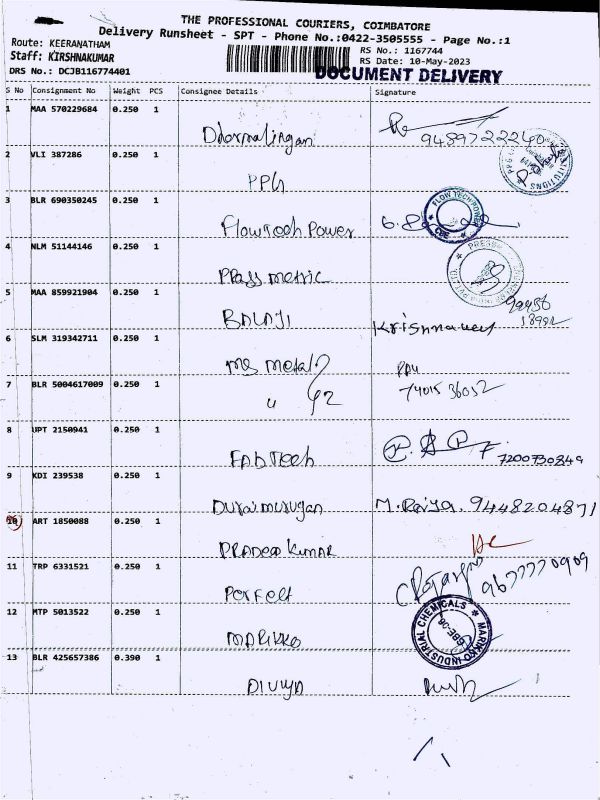 THE PROFESSIONAL COURIERS, COIMBATORE
Delivery Runsheet - SPT - Phone No.:0422-3505555 - Page No.:1
Route: KEERANATHAM
RS No.: 1167744
Staff: KIRSHNAKUMAR
RS Date: 10-May-2023
DRS No.: DCJB116774401
DOCUMENT DELIVERY
S No Consignment No Weight PCS Consignee Details Signature
1 MAA 570229684 0.250 1
Dharmalingan 9489722240
2 VLI 387286 0.250 1
PPG
3 BLR 690350245 0.250 1
FLOW TECH POWER
CBE
Flowtech Power
4 NLM 51144146 0.250 1
PRESS
Press metric
5 MAA 859921904 0.250 1
BALAJI Krishnaveny
6 SLM 319342711 0.250 1
ms metal
7 BLR 5004617009 0.250 1
74015 36052
8 UPT 2150941 0.250 1
FABTECH 7200730849
9 KDI 239538 0.250 1
Duraimurugan M. Raiya. 9448204871
10 ART 1850088 0.250 1
Pradeep Kumar
11 TRP 6331521 0.250 1
Perfect 9677770909
12 MTP 5013522 0.250 1
MARIKKO INDUSTRIAL CHEMICALS
CBE-06
MARIKKO
13 BLR 425657386 0.390 1
DIVYA